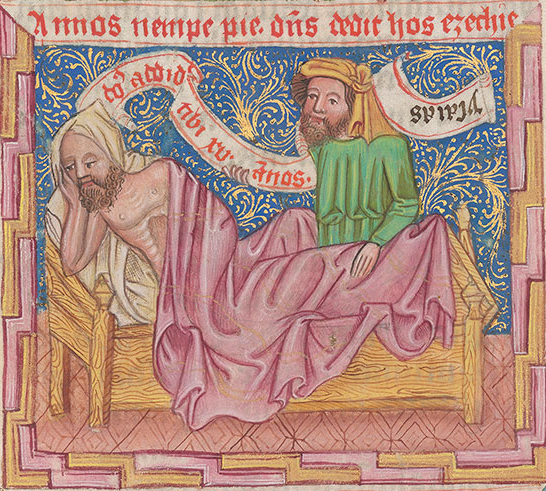 Annos nempe pie. dn̄s dedit hos ezechie
tibi xv. Ānos.
ysaias